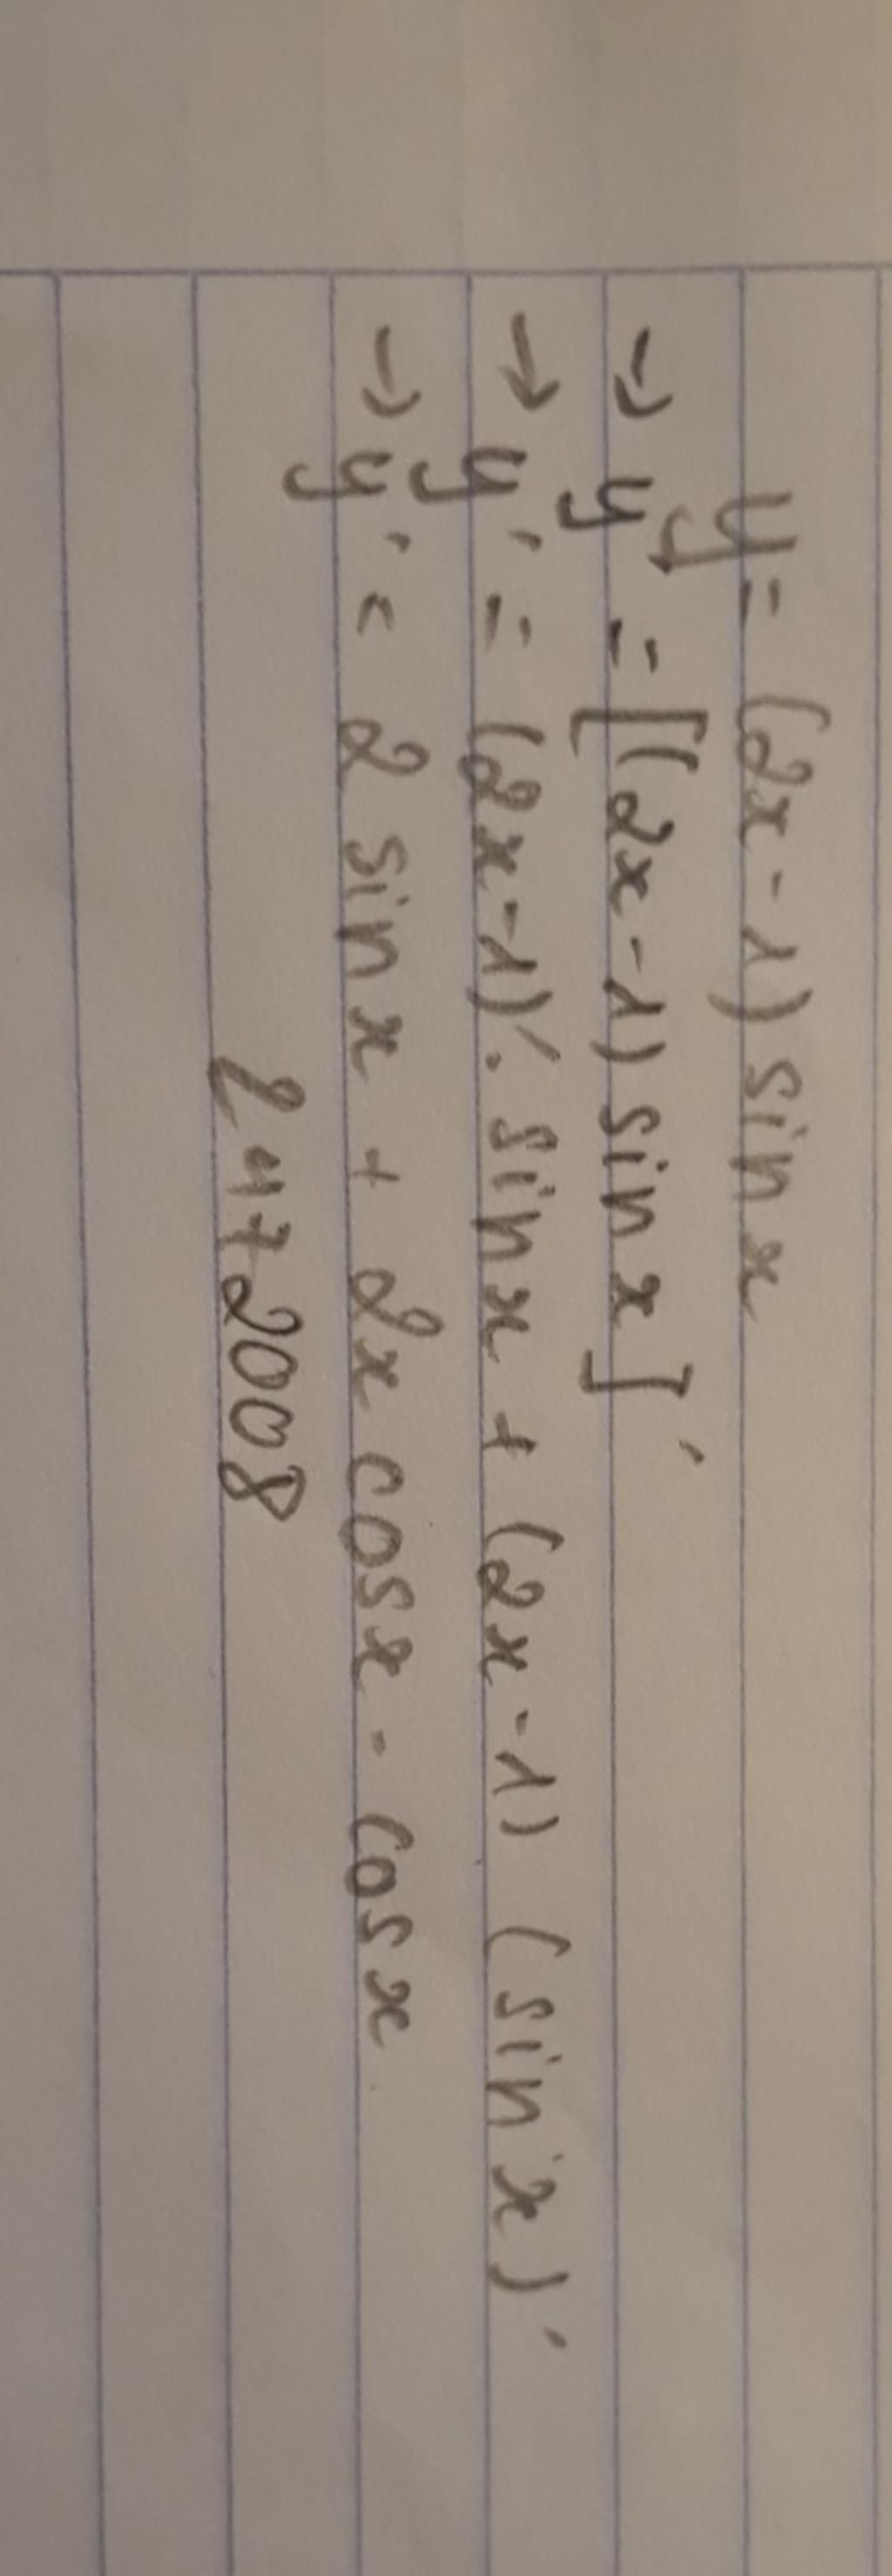 y = (2x-1) sin x
→ y = [(2x-1) sin x]'
→ y' = (2x-1)'. sin x + (2x-1) (sin x)'
→ y' = 2 sin x + 2x cos x - cos x
2472008